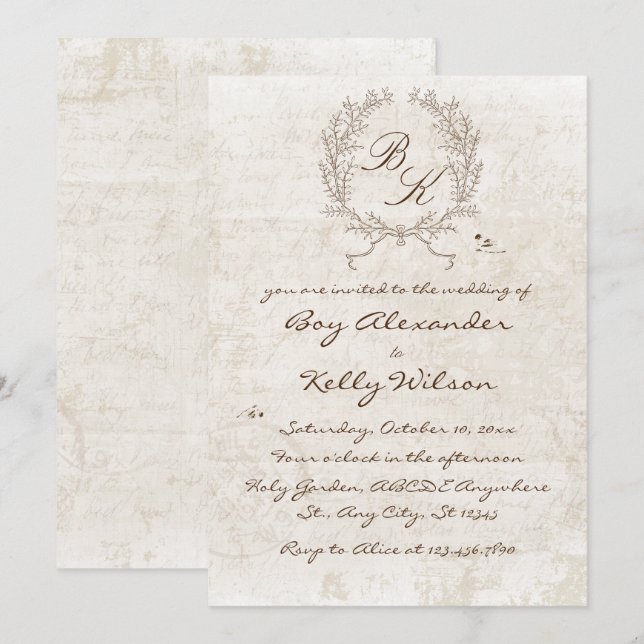 B
K
you are invited to the wedding of
Boy Alexander
to
Kelly Wilson
Saturday, October 10, 20xx
Four o'clock in the afternoon
Holy Garden, ABCDE Anywhere
St., Any City, St 12345
Rsvp to Alice at 123.456.7890